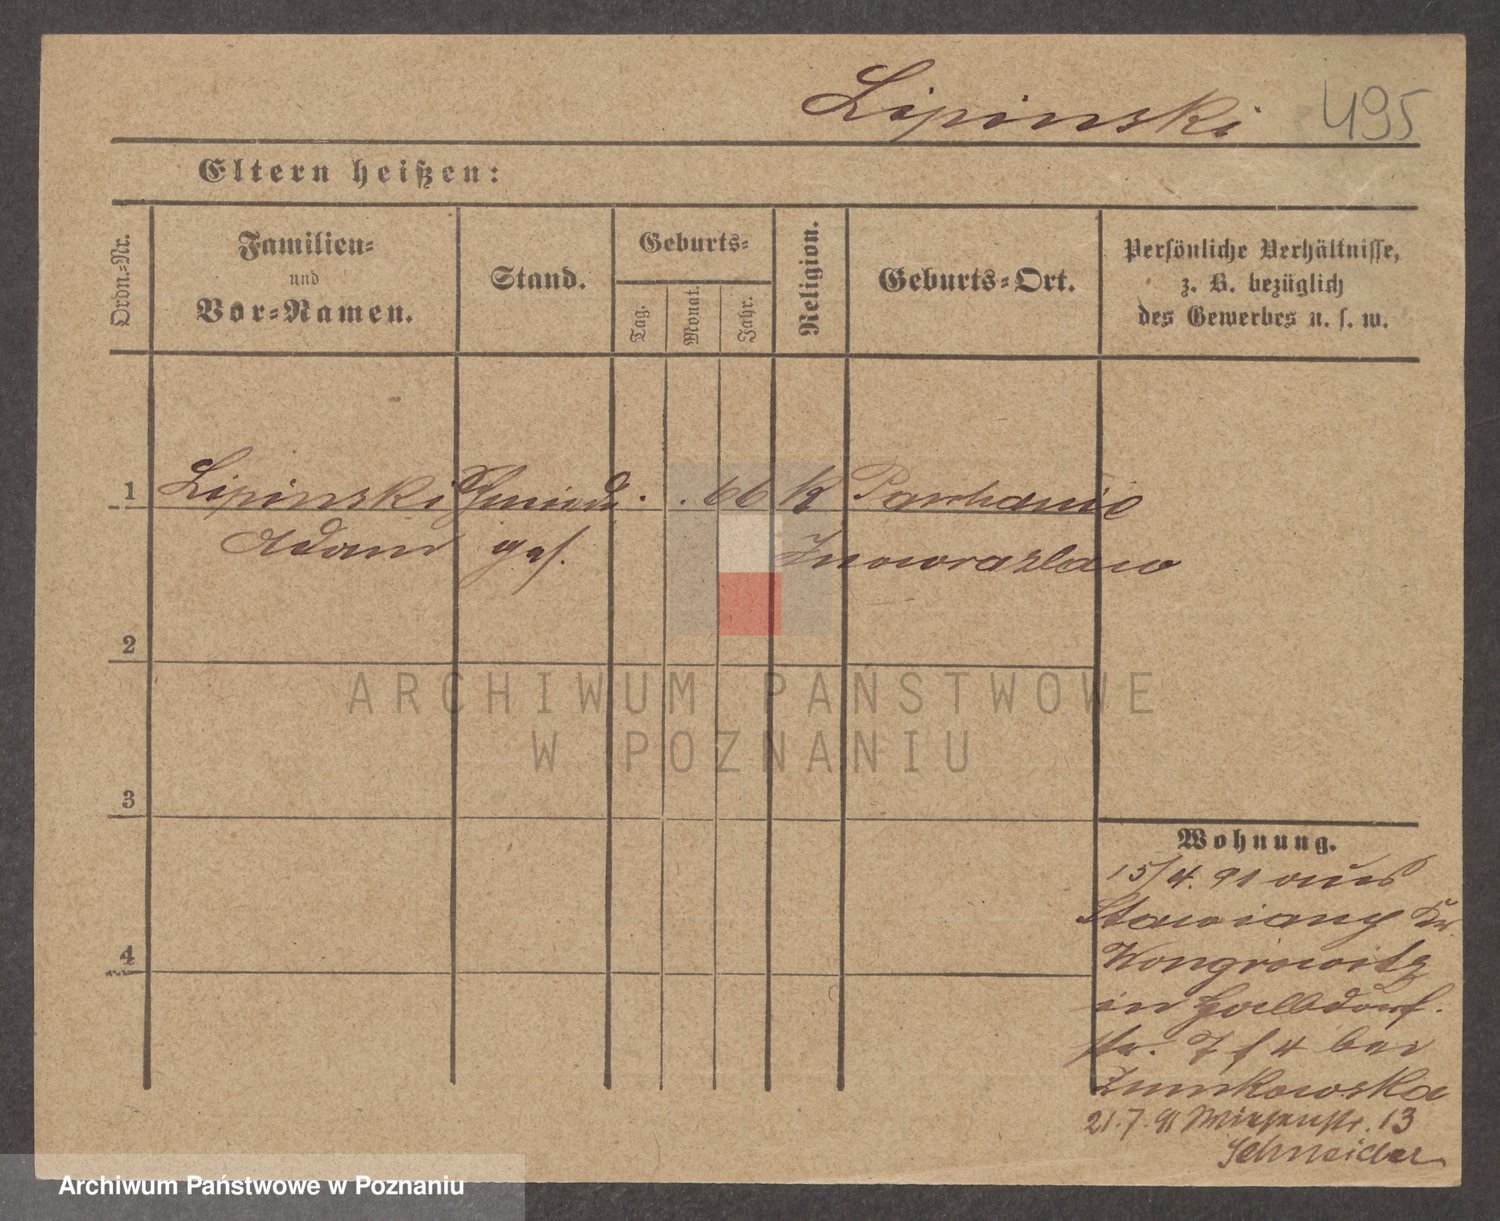 Lipinski 495
Eltern heißen:
Ordn.-Nr.
Familien-
und
Vor-Namen.
Stand.
Geburts-
Tag.
Monat.
Jahr.
Religion.
Geburts-Ort.
Persönliche Verhältnisse,
z. B. bezüglich
des Gewerbes u. s. w.
1 Lipinski Schmiede . . 66 K Parchanie
Adam ges. Inowrazlaw
2
3
4
Wohnung.
15/4. 91 aus
Stawiany Kr.
Wongrowitz
in Halbdorf-
str. 7 f 4 bei
Zunkowska
21.7.91 Wiesenstr. 13
Schneider
ARCHIWUM PAŃSTWOWE
W POZNANIU
Archiwum Państwowe w Poznaniu